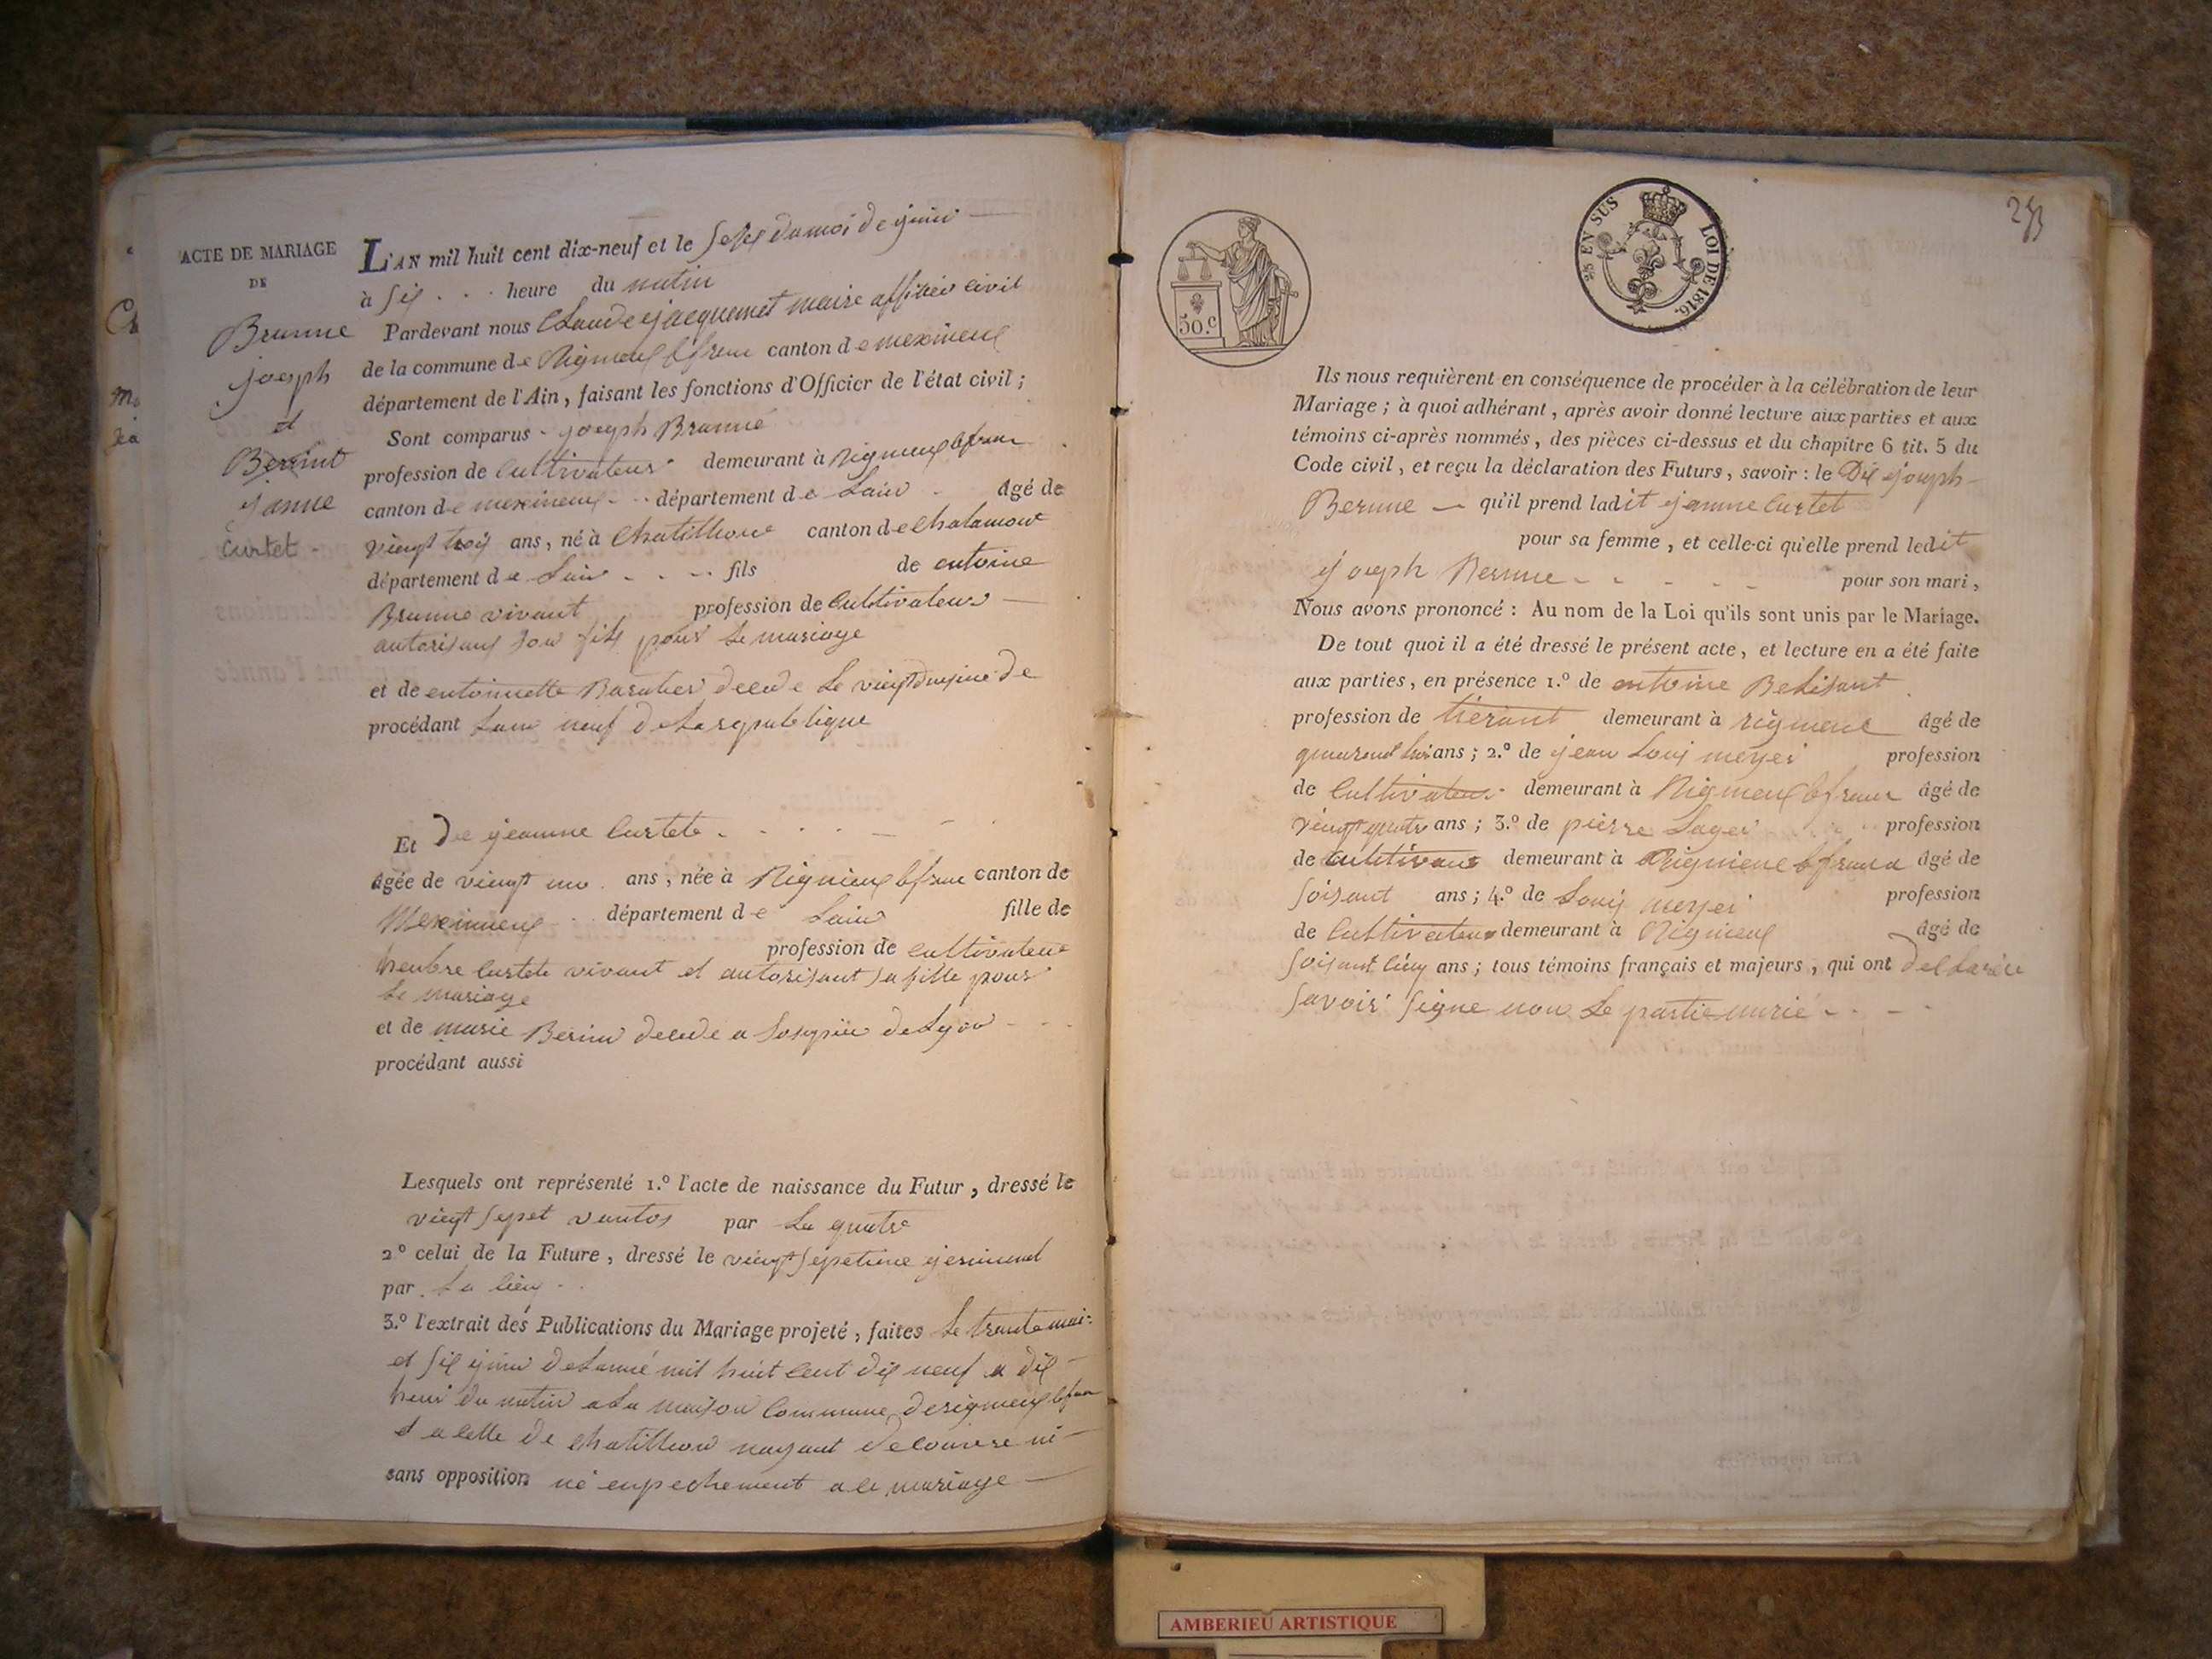 ACTE DE MARIAGE
DE
Brunne
joesph
et
Bersint
janne
curtet -
L'AN mil huit cent dix-neuf et le seize du mois de juin
à six . . . heure du matin
Pardevant nous Claude jacquemet maire officier civil
de la commune de Rigneux le franc canton de meximeux
département de l'Ain, faisant les fonctions d'Officier de l'état civil;
Sont comparus - joesph Brunne
profession de Cultivateur demeurant à Rigneux le franc
canton de meximeux - - département de Lain - âgé de
vingt trois ans, né à Chatillion canton de Chalamon
département de Lain - - - fils de entoine
Brunne vivant profession de Cultivateur
autorisant son fils pour le mariage
et de entoinette decede le vingt de
procédant Lan neuf de La republique
Et De jeanne Curtete
âgée de vingt un . ans, née à Rigneux le franc canton de
Meximieux département de Lain fille de
profession de cultivateur
Curtete vivant et autorisant sa fille pour
le mariage
et de marie Berin decede a de Lyon
procédant aussi
Lesquels ont représenté 1.º l'acte de naissance du Futur, dressé le
vingt sepet vantos par La quatre
2º celui de la Future, dressé le vingt sepetieme jerminal
par La
3.º l'extrait des Publications du Mariage projeté, faites Le trante mai
et six juin de Lannié mil huit Cent dix neuf a dix
heur du matin a La maison Commune de rigneux le fran
et a Celle de Chatillion nayant ni
sans opposition ni enpechement a ce mariage
253
50.c
25 EN SUS
LOI DE 1816.
Ils nous requièrent en conséquence de procéder à la célébration de leur
Mariage; à quoi adhérant, après avoir donné lecture aux parties et aux
témoins ci-après nommés, des pièces ci-dessus et du chapitre 6 tit. 5 du
Code civil, et reçu la déclaration des Futurs, savoir: le Dit joesph
Bernne - qu'il prend ladit jeanne Curtet
pour sa femme, et celle-ci qu'elle prend ledit
joesph Bernne - - - - - pour son mari,
Nous avons prononcé: Au nom de la Loi qu'ils sont unis par le Mariage.
De tout quoi il a été dressé le présent acte, et lecture en a été faite
aux parties, en présence 1.º de entoine Belisant
profession de demeurant à rigneux âgé de
ans; 2.º de jean Louis meyer profession
de Cultivateur demeurant à Rigneux le franc âgé de
vingt quatre ans; 3.º de pierre Lager profession
de cultivateur demeurant à Rignieux le franc âgé de
soisant ans; 4.º de Louis meyer profession
de Cultivateur demeurant à Rigneux âgé de
soisant cinq ans; tous témoins français et majeurs, qui ont
savoir signe non Le partie marié - - -
AMBERIEU ARTISTIQUE